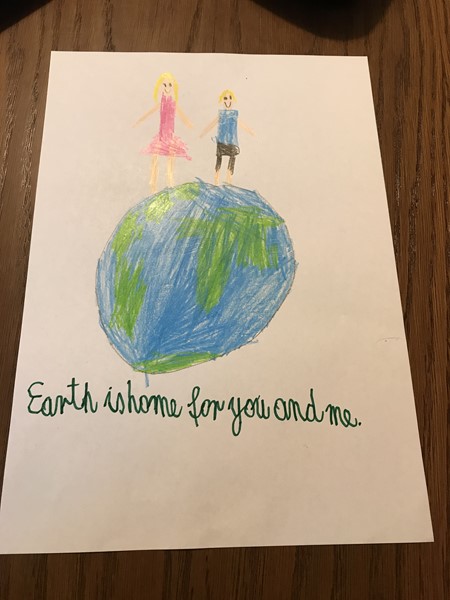 Earth is home for you and me.